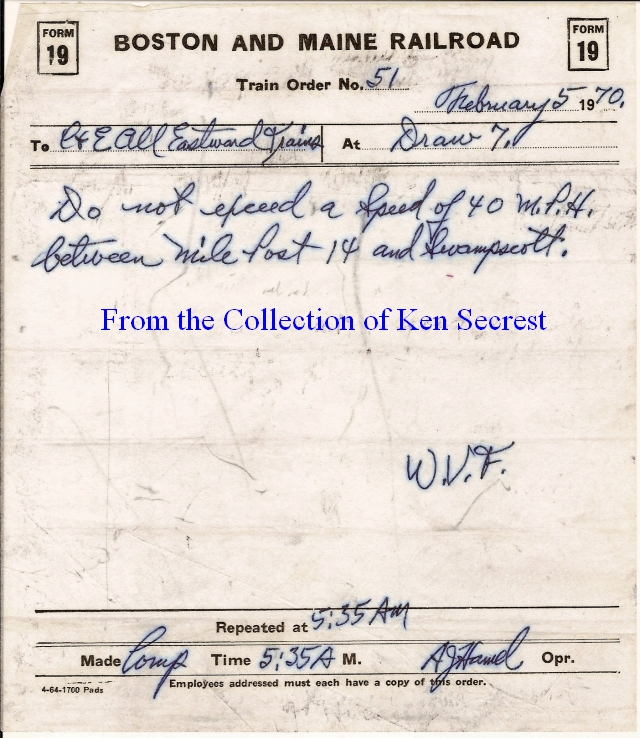 FORM 19
BOSTON AND MAINE RAILROAD
FORM 19
Train Order No. 51
February 5 1970.
To C+E All Eastward Trains At Draw 7,
Do not exceed a speed of 40 M.P.H.
between Mile Post 14 and Swampscott.
From the Collection of Ken Secrest
W.V.F.
Repeated at 5:35 AM
Made Comp Time 5:35A M. AJHamel Opr.
4-64-1700 Pads
Employees addressed must each have a copy of this order.